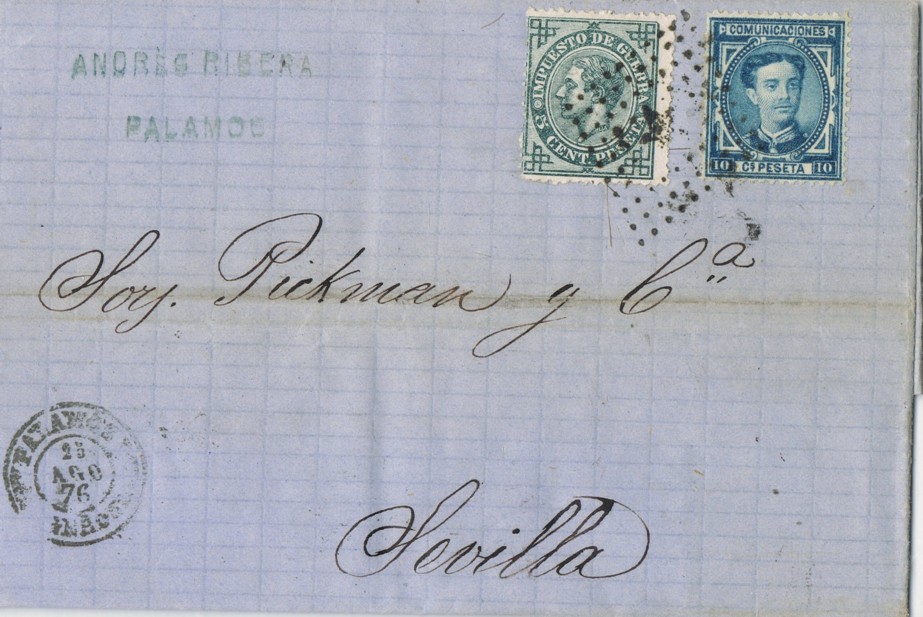 ANDRÉS RIBERA
PALAMOS
IMPUESTO DE GUERRA
5 Cº
CENT. PESETA
COMUNICACIONES
10 Cs PESETA 10
Sors. Pickman y Cªª
Sevilla
PALAMOS
25
AGO
76